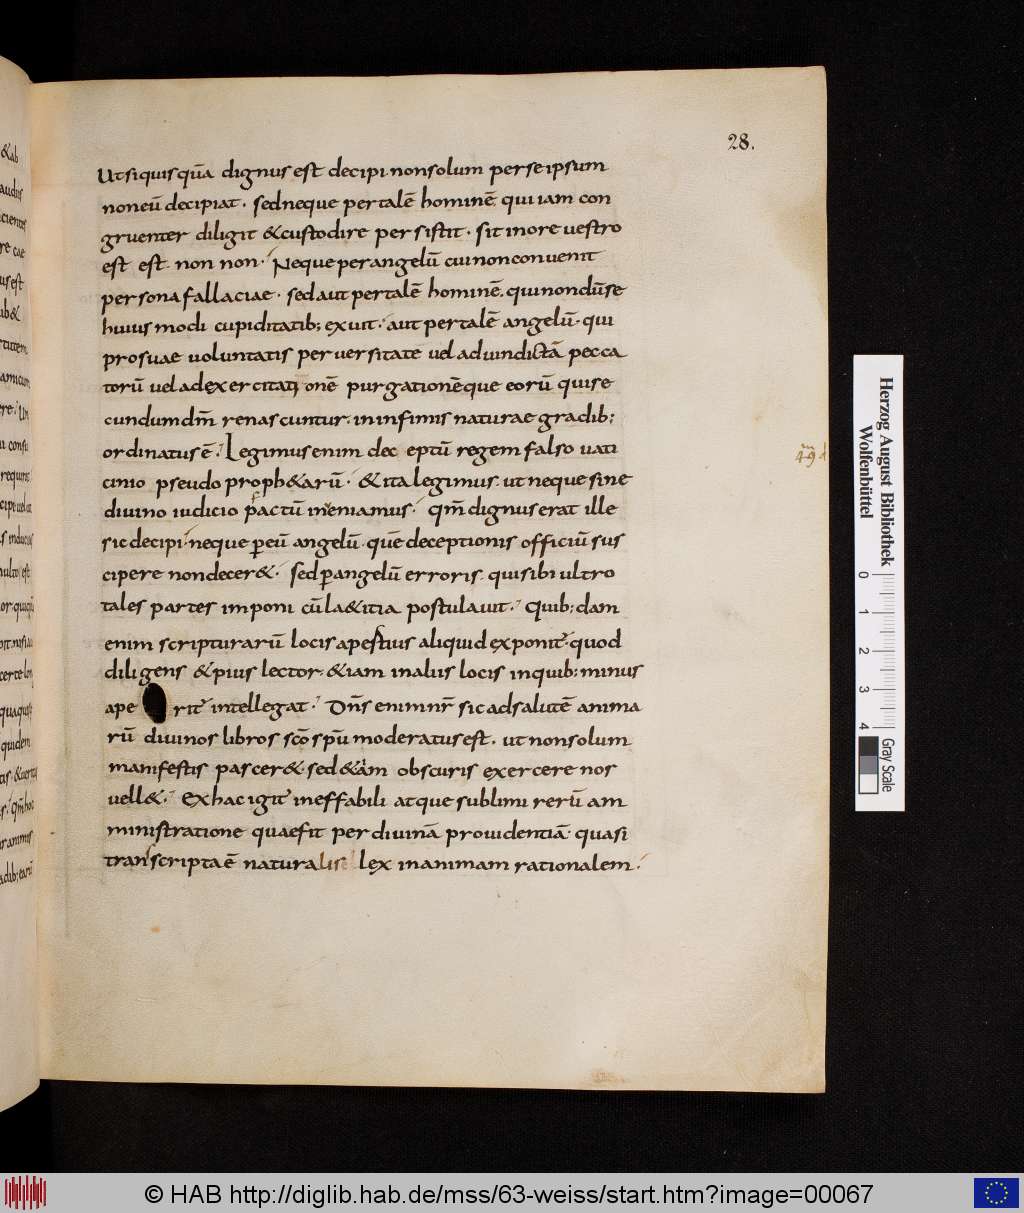 28.
Utsiquisquā dignus est decipi. nonsolum perseipsum
noneū decipiat. sedneque pertalē hominē. quiiam con
gruenter diligit &custodire persistit. sit inore uestro
est est. non non. Neque perangelū cuinonconuenit
persona fallaciae. sedaut pertalē hominē. quinondūse
huius modi cupiditatib; exuit. aut pertalē angelū. qui
prosuae uoluntatis peruersitate uel aduindictā pecca
torū uel adexercitati onē purgationēque eorū quise
cundumdm̄ renascuntur. ininfimis naturae gradib;
ordinatus ē. Legimusenim dec eptū regem falso uati
cinio pseudo proph&arū. &ita legimus. ut neque sine
diuino iudicio factū inueniamus. qm̄ dignus erat ille
sic decipi. neque p̲eū angelū. quē deceptionis officiū sus
cipere nondecer&. sed p̲angelū erroris. quisibi ultro
tales partes imponi cū la&itia postulauit. Quib;dam
enim scripturarū locis apertius aliquid exponit̄. quod
diligens &pius lector. &iam inaliis locis inquib; minus
ape rit̄ intellegat. Dn̄s enimnr̄ sic adsalutē anima
rū diuinos libros sc̄o sp̄u moderatus est. ut nonsolum
manifestis pascer&. sed&iām obscuris exercere nos
uell&. Ex hac igit̄ ineffabili atque sublimi rerū am
ministratione quaefit per diuinā prouidentiā. quasi
transcripta ē naturalis lex inanimam rationalem.
Herzog August Bibliothek
Wolfenbüttel
0 1 2 3 4
Gray Scale
© HAB http://diglib.hab.de/mss/63-weiss/start.htm?image=00067